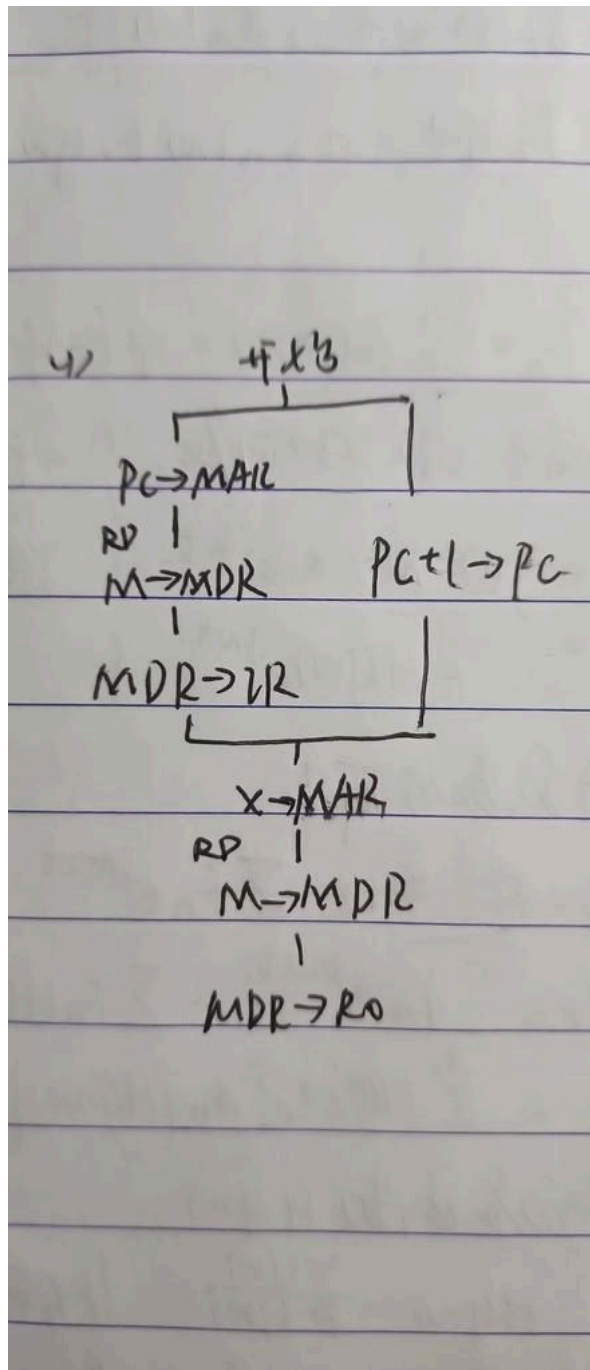 4) 开始
PC→MAR
RD
M→MDR
PC+1→PC
MDR→IR
X→MAR
RD
M→MDR
MDR→R0